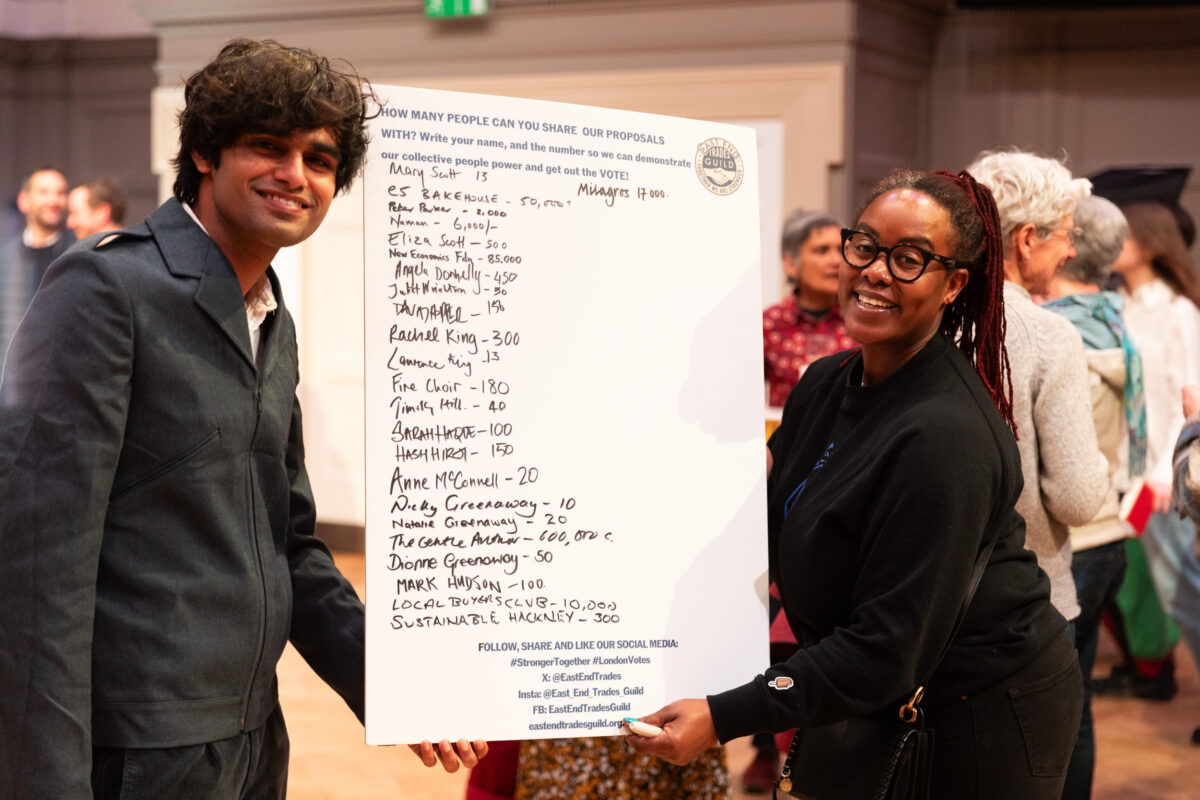 HOW MANY PEOPLE CAN YOU SHARE OUR PROPOSALS
WITH? Write your name, and the number so we can demonstrate
our collective people power and get out the VOTE!
EAST END
TRADES
GUILD
TOGETHER WE ARE STRONGER
Mary Scott 13
Milagros 17000.
e5 BAKEHOUSE - 50,000+
Peter Parker - 2.000
Naman - 6,000/-
Eliza Scott - 500
New Economics Fdn - 85,000
Angela Donnelly - 450
Juliet - 50
- 150
Rachel King - 300
Laurence King - 13
Fine Choir - 180
Timothy Hill. - 40
SARAH HAQUE - 100
HASH - 150
Anne McConnell - 20
Nicky Greenaway - 10
Natalie Greenaway - 20
The Gentle Author - 600,000 c.
Dionne Greenaway - 50
MARK HUDSON - 100.
LOCAL BUYERS CLUB - 10,000
SUSTAINABLE HACKNEY - 300
FOLLOW, SHARE AND LIKE OUR SOCIAL MEDIA:
#StrongerTogether #LondonVotes
X: @EastEndTrades
Insta: @East_End_Trades_Guild
FB: EastEndTradesGuild
eastendtradesguild.org